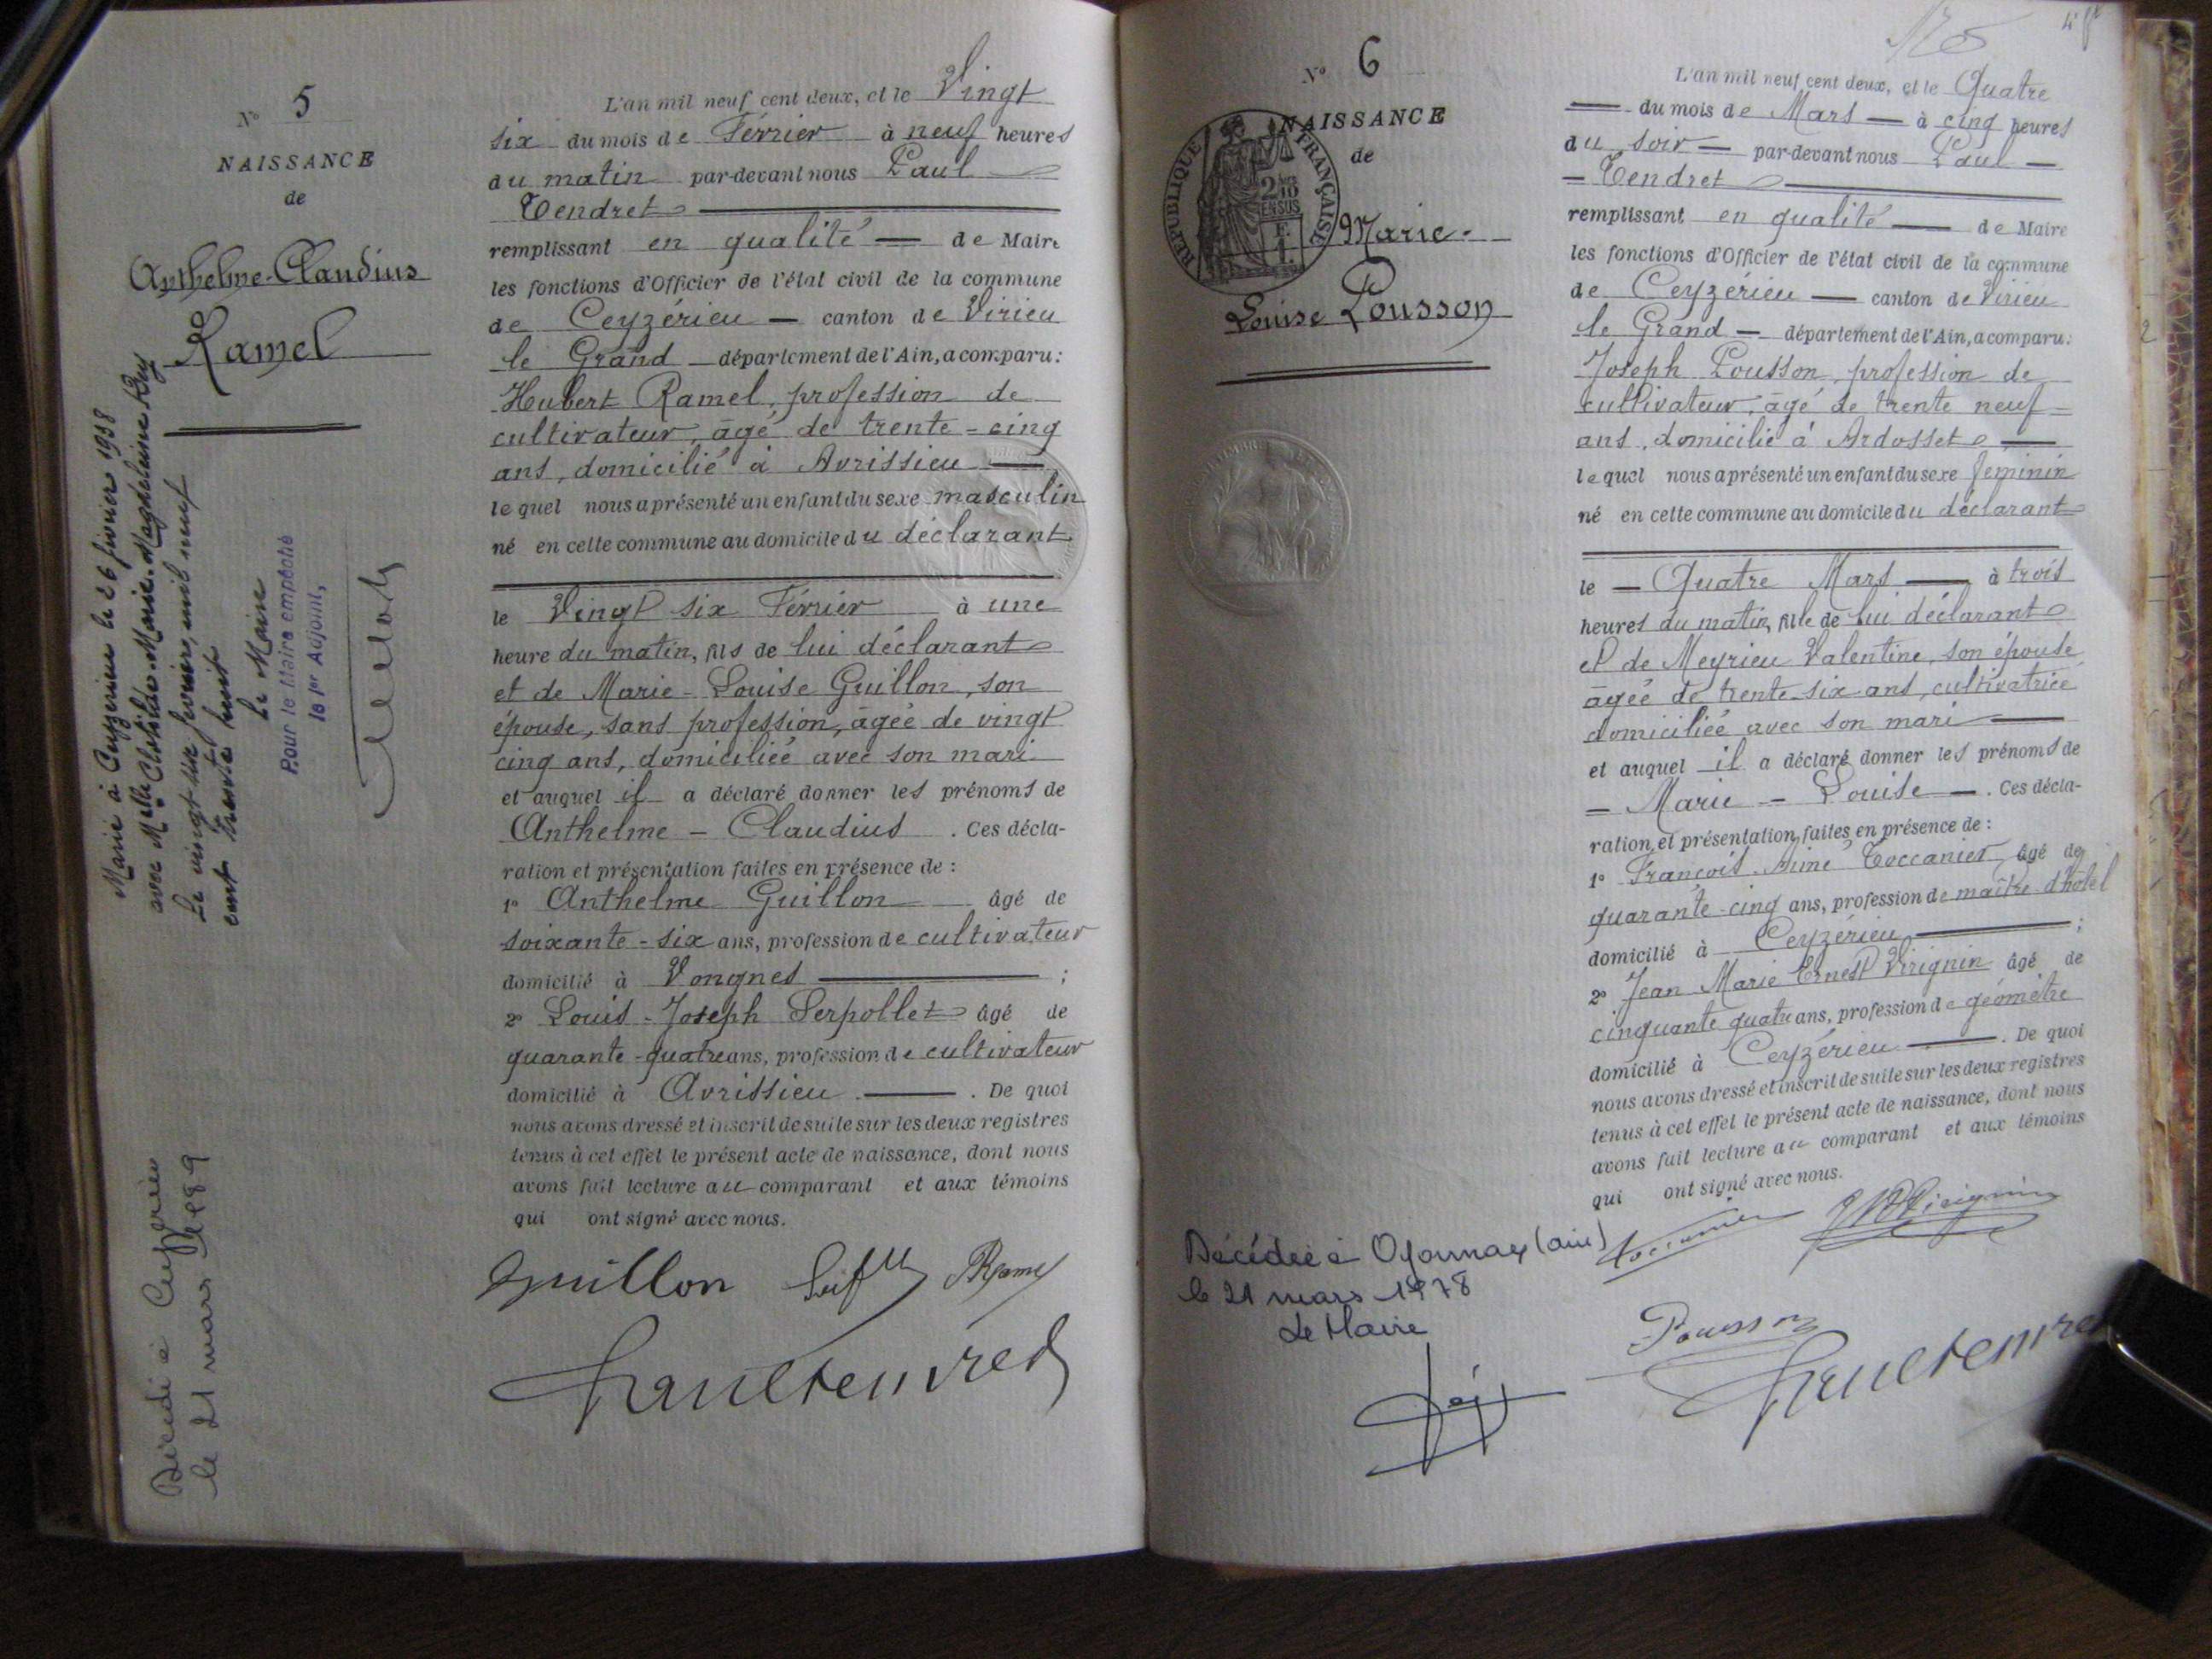 N° 5
NAISSANCE
de
Anthelme-Claudius
Ramel
Marié à Ceyzérieu le 26 février 1938
avec Melle Clotilde-Marie-Magdeleine Rey
Le vingt six février, mil neuf
cent trente huit
Le Maire
Pour le Maire empêché
le 1er Adjoint,
Décédé à Ceyzérieu
le 21 mars 1989
L'an mil neuf cent deux, et le Vingt
six du mois de Février à neuf heures
du matin par-devant nous Paul
Tendret
remplissant en qualité de Maire
les fonctions d'Officier de l'état civil de la commune
de Ceyzérieu canton de Virieu
le Grand département de l'Ain, a comparu :
Hubert Ramel, profession de
cultivateur, âgé de trente-cinq
ans, domicilié à Avrissieu
lequel nous a présenté un enfant du sexe masculin
né en cette commune au domicile du déclarant
le Vingt six Février à une
heure du matin, fils de lui déclarant
et de Marie-Louise Guillon, son
épouse, sans profession, âgée de vingt
cinq ans, domiciliée avec son mari
et auquel il a déclaré donner les prénoms de
Anthelme - Claudius . Ces décla-
ration et présentation faites en présence de :
1° Anthelme Guillon âgé de
soixante-six ans, profession de cultivateur
domicilié à Vongnes ;
2° Louis-Joseph Serpollet âgé de
quarante-quatre ans, profession de cultivateur
domicilié à Avrissieu . De quoi
nous avons dressé et inscrit de suite sur les deux registres
tenus à cet effet le présent acte de naissance, dont nous
avons fait lecture au comparant et aux témoins
qui ont signé avec nous.
Guillon Ramel
Paul Tendret
N° 6
NAISSANCE
de
REPUBLIQUE FRANÇAISE
2/10 EN SUS
Marie-
Louise Pousson
Décédée à Oyonnax (Ain)
le 21 mars 1978
Le Maire
L'an mil neuf cent deux, et le Quatre
du mois de Mars à cinq heures
du soir par-devant nous Paul
Tendret
remplissant en qualité de Maire
les fonctions d'Officier de l'état civil de la commune
de Ceyzérieu canton de Virieu
le Grand département de l'Ain, a comparu :
Joseph Pousson, profession de
cultivateur, âgé de trente neuf
ans, domicilié à Ardosset
lequel nous a présenté un enfant du sexe féminin
né en cette commune au domicile du déclarant
le Quatre Mars à trois
heures du matin, fille de lui déclarant
et de Meyrieu Valentine, son épouse
âgée de trente-six ans, cultivatrice
domiciliée avec son mari
et auquel il a déclaré donner les prénoms de
Marie - Louise . Ces décla-
ration et présentation faites en présence de :
1° François Aimé Toccanier âgé de
quarante-cinq ans, profession de maître d'hôtel
domicilié à Ceyzérieu ;
2° Jean Marie Ernest Virignin âgé de
cinquante quatre ans, profession de géomètre
domicilié à Ceyzérieu . De quoi
nous avons dressé et inscrit de suite sur les deux registres
tenus à cet effet le présent acte de naissance, dont nous
avons fait lecture au comparant et aux témoins
qui ont signé avec nous.
Toccanier Virignin
Pousson
Paul Tendret